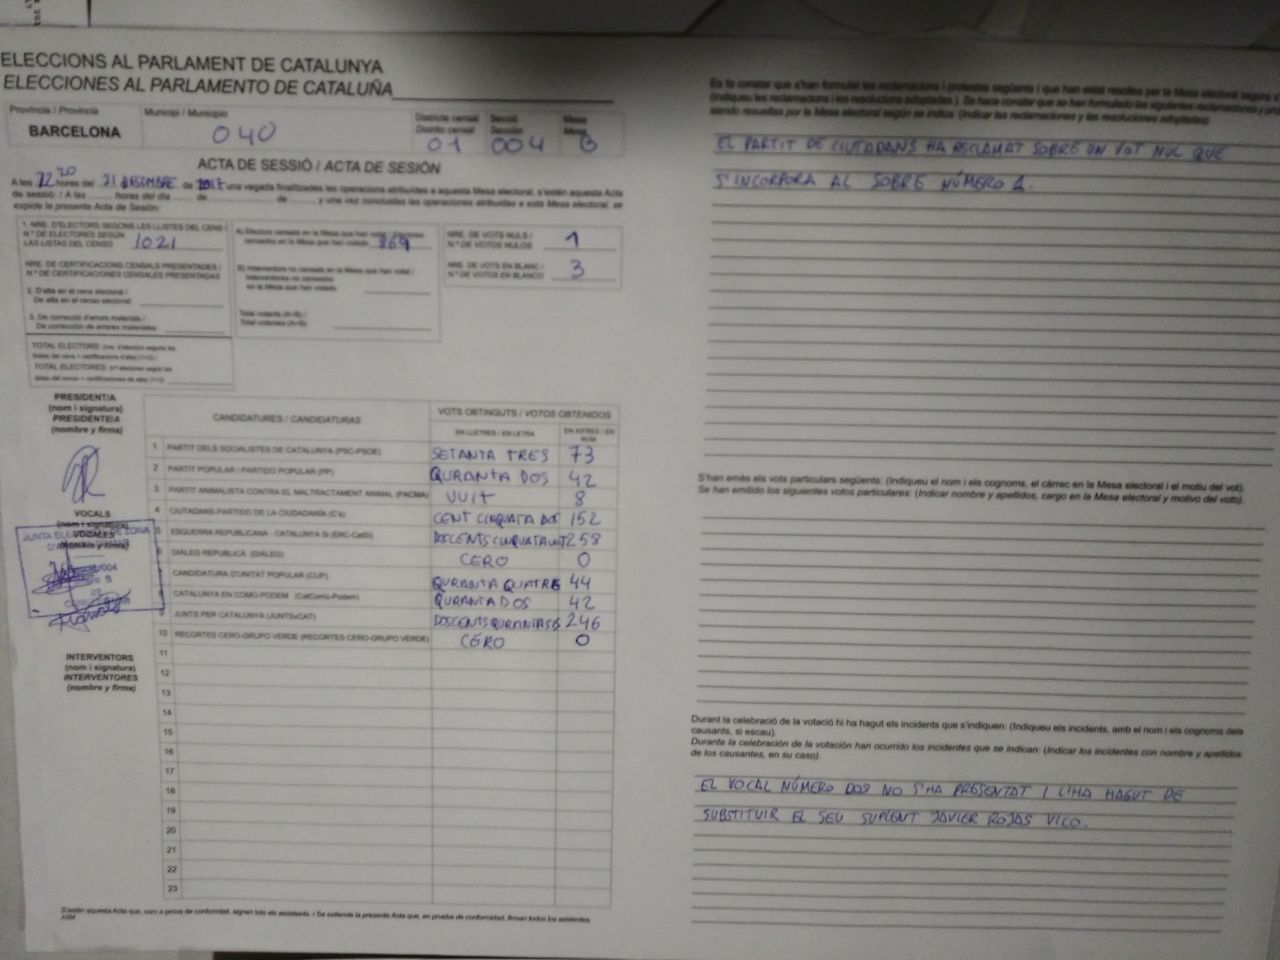 ELECCIONS AL PARLAMENT DE CATALUNYA
ELECCIONES AL PARLAMENTO DE CATALUÑA
Província / Provincia
BARCELONA
Municipi / Municipio
040
Districte censal
Distrito censal
01
Secció
Sección
004
Mesa
Mesa
B
ACTA DE SESSIÓ / ACTA DE SESIÓN
A les 22'20 hores del 21 DESEMBRE de 2017 una vegada finalitzades les operacions atribuïdes a aquesta Mesa electoral, s'estén aquesta Acta
de sessió. / A las horas del día de de y una vez concluidas las operaciones atribuidas a esta Mesa electoral, se
expide la presente Acta de Sesión:
1. NRE. D'ELECTORS SEGONS LES LLISTES DEL CENS /
N.º DE ELECTORES SEGÚN
LAS LISTAS DEL CENSO 1021
NRE. DE CERTIFICACIONS CENSALS PRESENTADES /
N.º DE CERTIFICACIONES CENSALES PRESENTADAS
2. D'alta en el cens electoral /
De alta en el censo electoral:
3. De correcció d'errors materials /
De corrección de errores materiales:
TOTAL ELECTORS:
TOTAL ELECTORES:
A) Electors censats en la Mesa que han votat / Electores
censados en la Mesa que han votado 869
B) Interventors no censats en la Mesa que han votat /
Interventores no censados
en la Mesa que han votado
Total votants (A+B) /
Total votantes (A+B)
NRE. DE VOTS NULS /
N.º DE VOTOS NULOS 1
NRE. DE VOTS EN BLANC /
N.º DE VOTOS EN BLANCO 3
PRESIDENT/A
(nom i signatura)
PRESIDENTE/A
(nombre y firma)
VOCALS
(nom i signatura)
VOCALES
(nombre y firma)
JUNTA ELECTORAL DE ZONA
INTERVENTORS
(nom i signatura)
INTERVENTORES
(nombre y firma)
CANDIDATURES / CANDIDATURAS
VOTS OBTINGUTS / VOTOS OBTENIDOS
EN LLETRES / EN LETRA
EN XIFRES / EN NÚM
1 PARTIT DELS SOCIALISTES DE CATALUNYA (PSC-PSOE) SETANTA TRES 73
2 PARTIT POPULAR / PARTIDO POPULAR (PP) QURANTA DOS 42
3 PARTIT ANIMALISTA CONTRA EL MALTRACTAMENT ANIMAL (PACMA) VUIT 8
4 CIUTADANS-PARTIDO DE LA CIUDADANÍA (C's) CENT CINQUATA DOS 152
5 ESQUERRA REPUBLICANA - CATALUNYA SÍ (ERC-CatSí) DOSCENTS CINQUATA VUIT 258
6 DIÀLEG REPÚBLICA (DIÀLEG) CERO 0
7 CANDIDATURA D'UNITAT POPULAR (CUP) QURANTA QUATRE 44
8 CATALUNYA EN COMÚ-PODEM (CatComú-Podem) QURANTA DOS 42
9 JUNTS PER CATALUNYA (JUNTSxCAT) DOSCENTS QURANTA SIS 246
10 RECORTES CERO-GRUPO VERDE (RECORTES CERO-GRUPO VERDE) CERO 0
11
12
13
14
15
16
17
18
19
20
21
22
23
S'estén aquesta Acta que, com a prova de conformitat, signen tots els assistents. / Se extiende la presente Acta que, en prueba de conformidad, firman todos los asistentes.
Es fa constar que s'han formulat les reclamacions i protestes següents i que han estat resoltes per la Mesa electoral segons
(Indiqueu les reclamacions i les resolucions adoptades). Se hace constar que se han formulado las siguientes reclamaciones y
siendo resueltas por la Mesa electoral según se indica: (Indicar las reclamaciones y las resoluciones adoptadas).
EL PARTIT DE CIUTADANS HA RECLAMAT SOBRE UN VOT NUL QUE
S'INCORPORA AL SOBRE NÚMERO 1.
S'han emès els vots particulars següents: (Indiqueu el nom i els cognoms, el càrrec en la Mesa electoral i el motiu del vot).
Se han emitido los siguientes votos particulares: (Indicar nombre y apellidos, cargo en la Mesa electoral y motivo del voto).
Durant la celebració de la votació hi ha hagut els incidents que s'indiquen: (Indiqueu els incidents, amb el nom i els cognoms dels
causants, si escau).
Durante la celebración de la votación han ocurrido los incidentes que se indican: (Indicar los incidentes con nombre y apellidos
de los causantes, en su caso).
EL VOCAL NÚMERO DOS NO S'HA PRESENTAT I L'HA HAGUT DE
SUBSTITUIR EL SEU SUPLENT JAVIER ROJAS VICO.